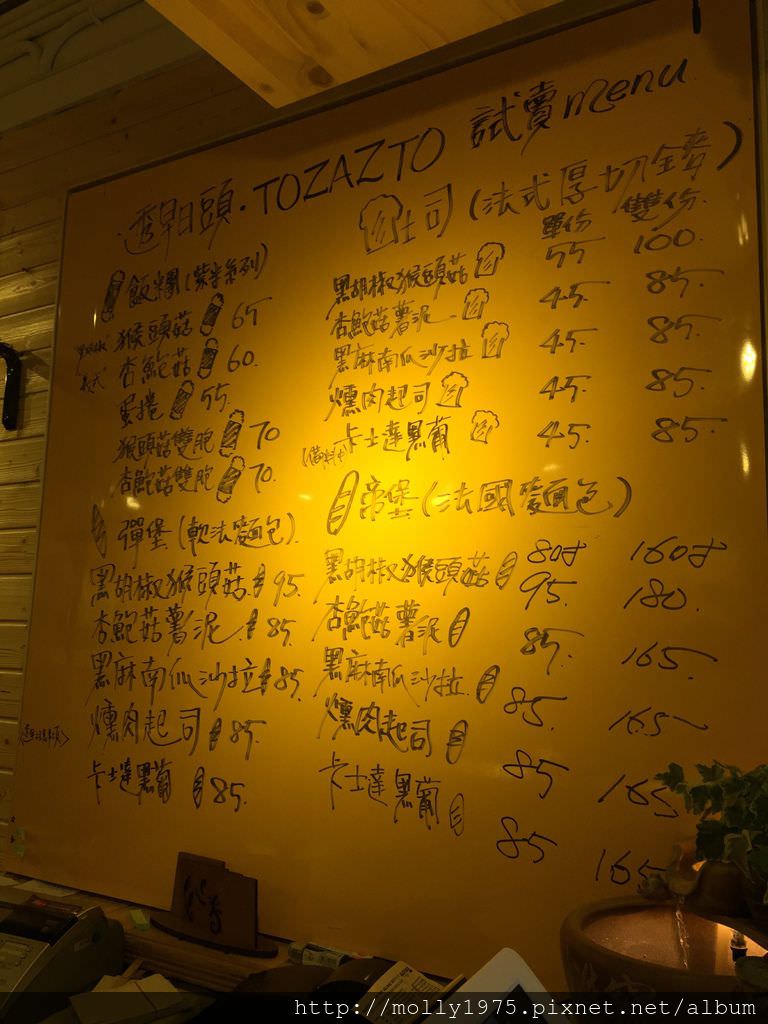 透早日頭·TOZAZTO 試賣menu
飯糰(紫米系列)
猴頭菇 65
杏鮑菇 60.
蛋捲 55.
猴頭菇雙胞 70
杏鮑菇雙胞 70.
彈堡(軟法麵包)
黑胡椒猴頭菇 95.
杏鮑菇薯泥 85.
黑麻南瓜沙拉 85.
燻肉起司 85.
卡士達黑葡 85.
土司(法式厚切全麥)
單份 雙份
黑胡椒猴頭菇 55 100.
杏鮑菇薯泥 45. 85.
黑麻南瓜沙拉 45. 85.
燻肉起司 45. 85.
卡士達黑葡 45. 85.
帝堡(法國麵包)
8吋 16吋
黑胡椒猴頭菇 95. 180.
杏鮑菇薯泥 85. 165.
黑麻南瓜沙拉 85. 165
燻肉起司 85 165
卡士達黑葡 85 165
http://molly1975.pixnet.net/album